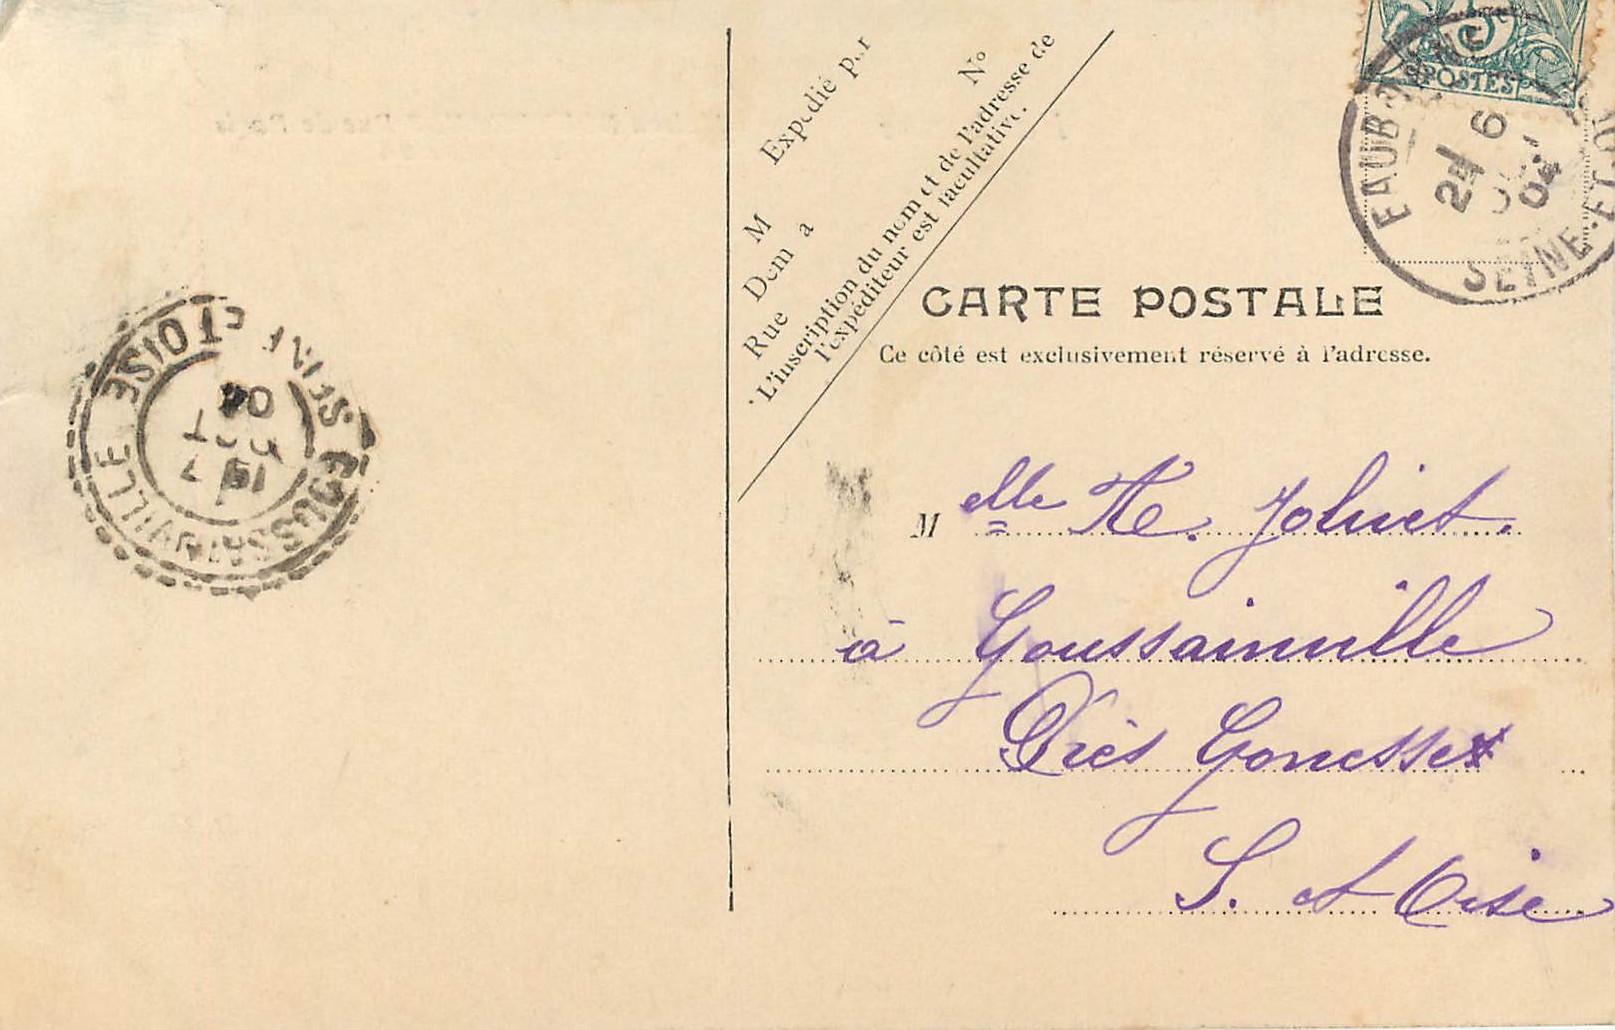 Expédié par
M
Dem à
Rue
N°
L'inscription du nom et de l'adresse de
l'expéditeur est facultative.
5c
POSTES
EAUBONNE
SEINE-ET-OISE
6
04
CARTE POSTALE
Ce côté est exclusivement réservé à l'adresse.
Melle Jolivet.
à Goussainville
Près Gonesse
S. et Oise
GOUSSAINVILLE
SEINE ET OISE
04